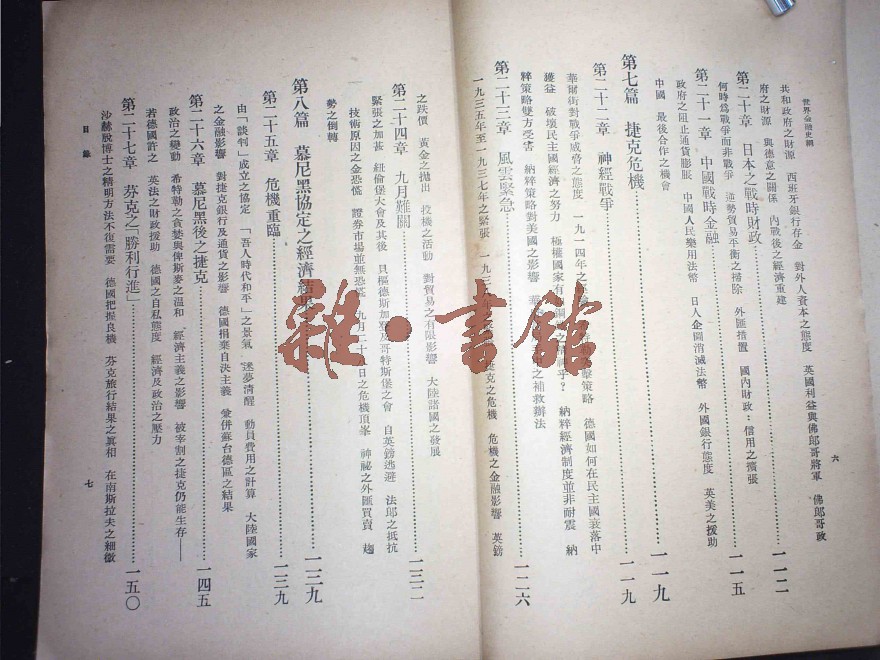 世界金融史綱
六
共和政府之財源　西班牙銀行存金　對外人資本之態度　英國利益與佛郎哥將軍　佛郎哥政
府之財源　與德意之關係　內戰後之經濟重建
第二十章　日本之戰時財政…………一一二
何時爲戰爭而非戰爭　逆勢貿易平衡之掃除　外匯措置　國內財政：信用之擴張
第二十一章　中國戰時金融…………一一五
政府之阻止通貨膨脹　中國人民樂用法幣　日人企圖消滅法幣　外國銀行態度　英美之援助
中國　最後合作之機會
第七篇　捷克危機…………一一九
第二十二章　神經戰爭…………一一九
華爾街對戰爭威脅之態度　一九一四年之　策略　德國如何在民主國衰落中
獲益　破壞民主國經濟之努力　極權國家有　乎？　納粹經濟制度並非耐震　納
粹策略雙方受害　納粹策略對美國之影響　之補救辦法
第二十三章　風雲緊急…………一二六
一九三五年至一九三七年之緊張　一九三八年　捷克之危機　危機之金融影響　英鎊
之跌價　黃金之拋出　投機之活動　對貿易之有限影響　大陸諸國之發展
第二十四章　九月難關…………一三二
緊張之加甚　紐倫堡大會及其後　貝樞德斯加登及哥特斯堡之會　自英鎊逃避　法郎之抵抗
技術原因之金恐慌　證券市場並無恐慌　九月二十　日之危機頂峯　神祕之外匯買賣　趨
勢之倒轉
第八篇　慕尼黑協定之經濟結果…………一三九
第二十五章　危機重臨…………一三九
由「談判」成立之協定　「吾人時代和平」之景氣　迷夢清醒　動員費用之計算　大陸國家
之金融影響　對捷克銀行及通貨之影響　德國捐棄自決主義　彙併蘇台德區之結果
第二十六章　慕尼黑後之捷克…………一四五
政治之變動　希特勒之貪婪與俾斯麥之溫和　經濟主義之影響　被宰割之捷克仍能生存——
若德國許之　英法之財政援助　德國之自私態度　經濟及政治之壓力
第二十七章　芬克之「勝利行進」…………一五〇
沙赫脫博士之精明方法不復需要　德國把握良機　芬克旅行結果之眞相　在南斯拉夫之細微
目錄
七
雜·書館